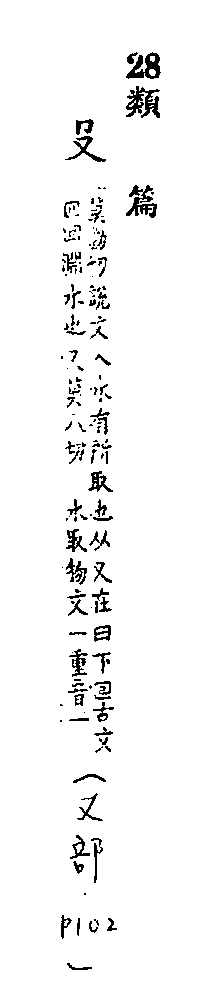 28類篇
叟莫勃切說文入水有所取也从又在囘下囘古文
回回淵水也又莫八切水取物文一重音一
（又部
P102
）